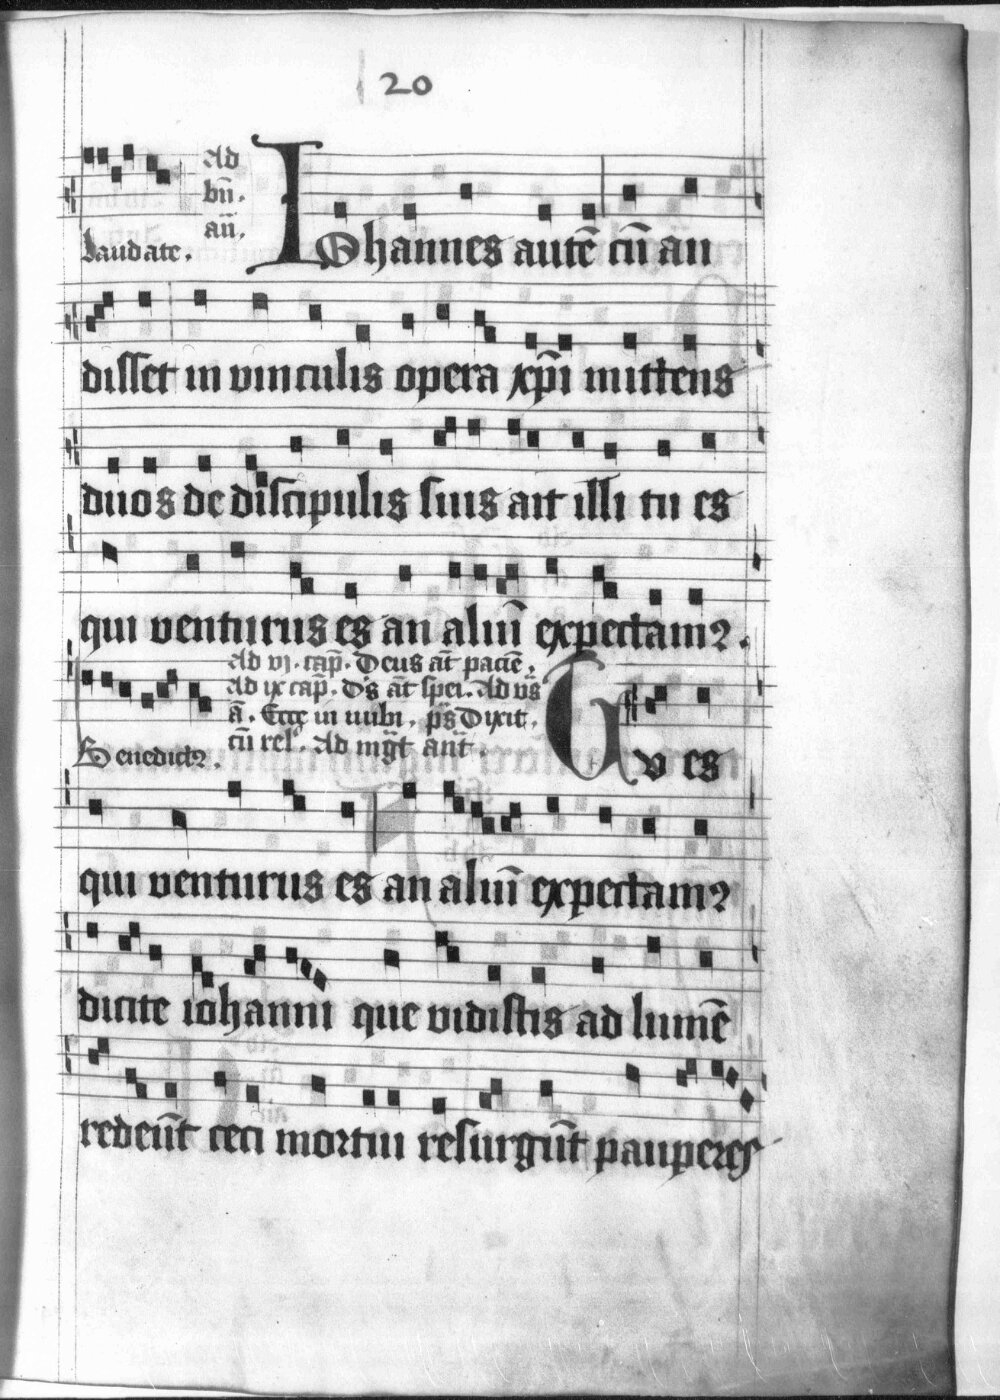 20
Ad
bn̄.
an̄.
laudate.
Iohannes autē cū au
disset in vinculis opera xp̄i mittens
duos de discipulis suis ait illi tu es
qui venturus es an aliū expectamꝰ.
Ad vj. cap̄. Deus at̄ pacie̅.
Ad ix cap̄. Ds̄ at̄ spei. Ad vs̄
ā. Ecce in nubi. ps̄ Dixit.
cū rel. Ad mḡt ant̄.
Benedictꝰ.
Tv es
qui venturus es an aliū expectamꝰ
dicite iohanni que vidistis ad lumē
redeūt ceci mortui resurgūt pauperes